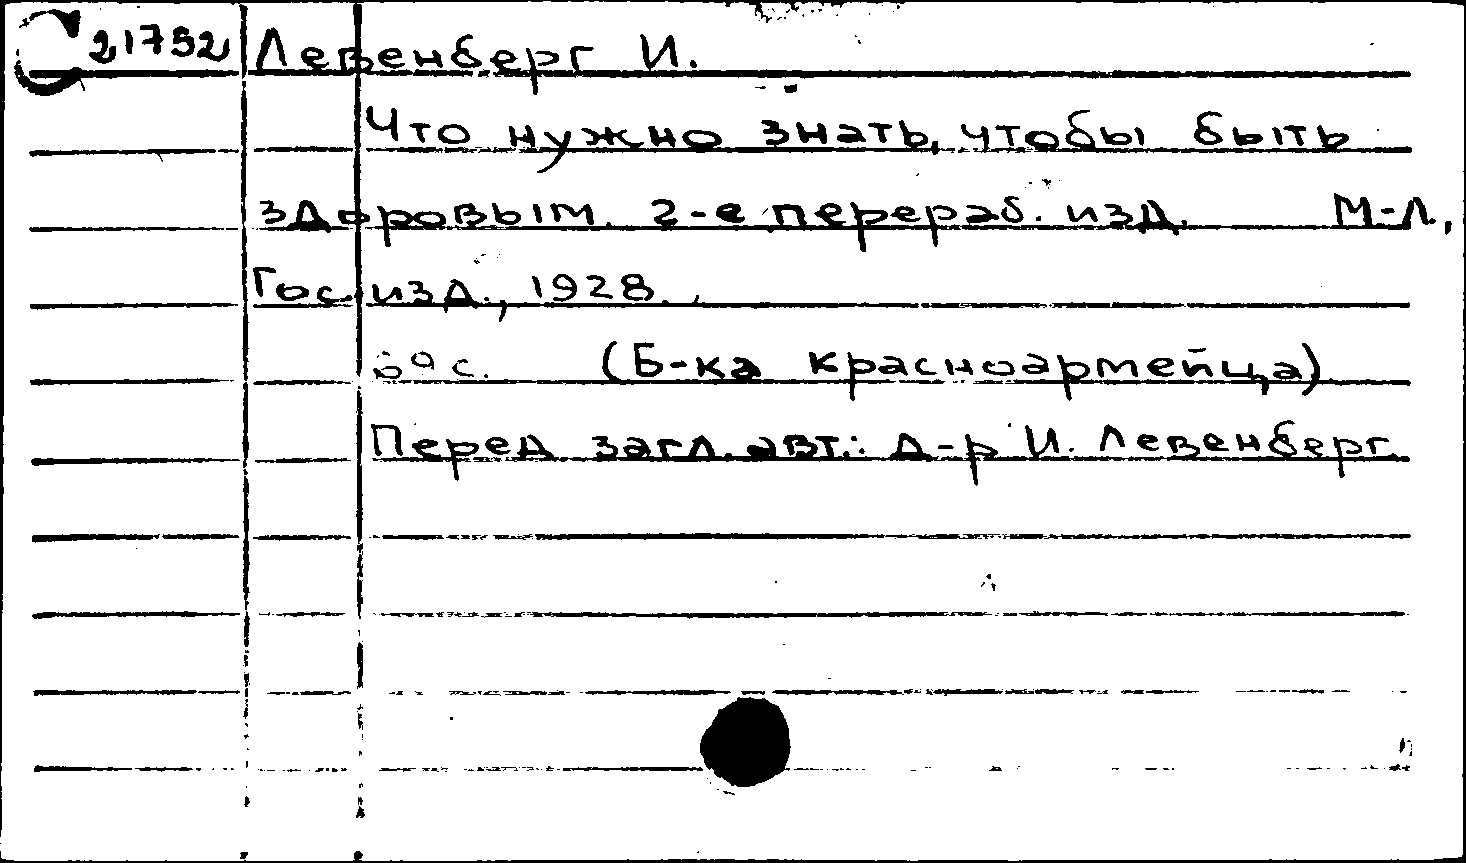 С 21752 Левенберг И.
Что нужно знать, чтобы быть
здоровым. 2-е перераб. изд. М-Л.,
Гос. изд., 1928.
с. (Б-ка красноармейца)
Перед загл. авт.: д-р И. Левенберг.